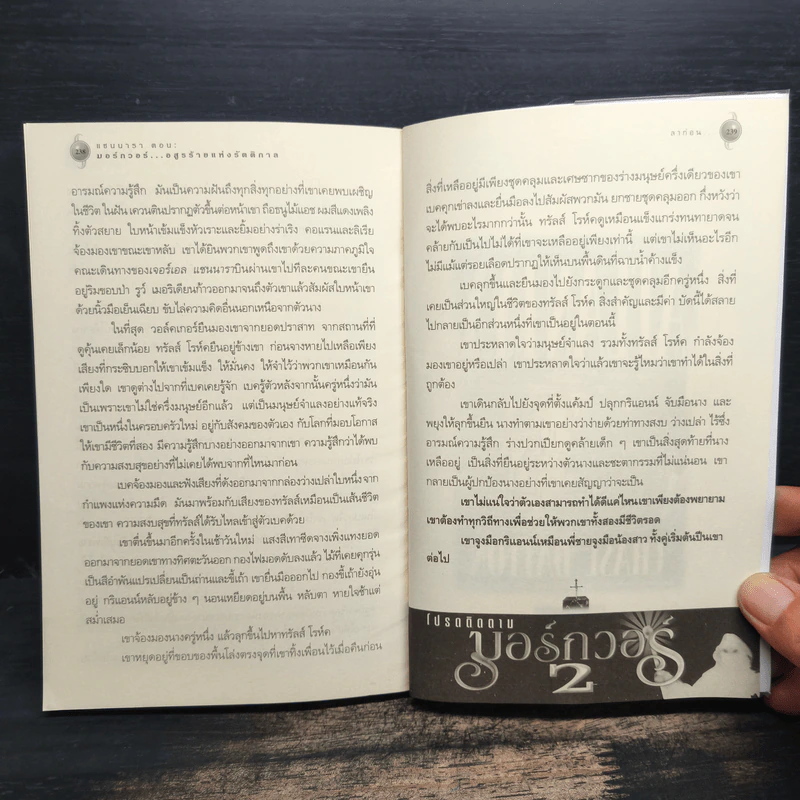 238
แชนนารา ตอน:
มอร์กวอร์...อสูรร้ายแห่งรัตติกาล
อารมณ์ความรู้สึก มันเป็นความฝันถึงทุกสิ่งทุกอย่างที่เขาเคยพบเผชิญ
ในชีวิต ในฝัน เควนตินปรากฏตัวขึ้นต่อหน้าเขา ถือธนูไม้แอช ผมสีแดงเพลิง
ทิ้งตัวสยาย ใบหน้าเข้มแข็งหัวเราะและยิ้มอย่างร่าเริง คอแรนและลิเรีย
จ้องมองเขาขณะเขาหลับ เขาได้ยินพวกเขาพูดถึงเขาด้วยความภาคภูมิใจ
คณะเดินทางของเจอร์เอล แชนนาราบินผ่านเขาไปทีละคนขณะเขายืน
อยู่ริมขอบป่า รูว์ เมอริเดียนก้าวออกมาจนถึงตัวเขาแล้วสัมผัสใบหน้าเขา
ด้วยนิ้วมือเย็นเฉียบ ขับไล่ความคิดอื่นนอกเหนือจากตัวนาง
ในที่สุด วอล์คเกอร์ยืนมองเขาจากยอดปราสาท จากสถานที่ที่
ดูคุ้นเคยเล็กน้อย ทรัลส์ โรห์คยืนอยู่ข้างเขา ก่อนจางหายไปเหลือเพียง
เสียงที่กระซิบบอกให้เขาเข้มแข็ง ให้มั่นคง ให้จำไว้ว่าพวกเขาเหมือนกัน
เพียงใด เขาดูต่างไปจากที่เบคเคยรู้จัก เบครู้ตัวหลังจากนั้นครู่หนึ่งว่ามัน
เป็นเพราะเขาไม่ใช่ครึ่งมนุษย์อีกแล้ว แต่เป็นมนุษย์จำแลงอย่างแท้จริง
เขาเป็นหนึ่งในครอบครัวใหม่ อยู่กับสังคมของตัวเอง กับโลกที่มอบโอกาส
ให้เขามีชีวิตที่สอง มีความรู้สึกบางอย่างออกมาจากเขา ความรู้สึกว่าได้พบ
กับความสงบสุขอย่างที่ไม่เคยได้พบจากที่ไหนมาก่อน
เบคจ้องมองและฟังเสียงที่ดังออกมาจากกล่องว่างเปล่าใบหนึ่ง จาก
กำแพงแห่งความมืด มันมาพร้อมกับเสียงของทรัลส์เหมือนเป็นเส้นชีวิต
ของเขา ความสงบสุขที่ทรัลส์ได้รับไหลเข้าสู่ตัวเบคด้วย
เขาตื่นขึ้นมาอีกครั้งในเช้าวันใหม่ แสงสีเทาซีดจางเพิ่งแทงยอด
ออกมาจากยอดเขาทางทิศตะวันออก กองไฟมอดดับลงแล้ว ไม้ที่เคยคุกรุ่น
เป็นสีอำพันแปรเปลี่ยนเป็นถ่านและขี้เถ้า เขายื่นมือออกไป กองขี้เถ้ายังอุ่น
อยู่ กริแอนน์หลับอยู่ข้าง ๆ นอนเหยียดอยู่บนพื้น หลับตา หายใจช้าแต่
สม่ำเสมอ
เขาจ้องมองนางครู่หนึ่ง แล้วลุกขึ้นไปหาทรัลส์ โรห์ค
เขาหยุดอยู่ที่ขอบของพื้นโล่งตรงจุดที่เขาทิ้งเพื่อนไว้เมื่อคืนก่อน
ลาก่อน
239
สิ่งที่เหลืออยู่มีเพียงชุดคลุมและเศษซากของร่างมนุษย์ครึ่งเดียวของเขา
เบคคุกเข่าลงและยื่นมือลงไปสัมผัสพวกมัน ยกชายชุดคลุมออก กึ่งหวังว่า
จะได้พบอะไรมากกว่านั้น ทรัลส์ โรห์คดูเหมือนแข็งแกร่งทนทายาดจน
คล้ายกับเป็นไปไม่ได้ที่เขาจะเหลืออยู่เพียงเท่านี้ แต่เขาไม่เห็นอะไรอีก
ไม่มีแม้แต่รอยเลือดปรากฏให้เห็นบนพื้นดินที่ฉาบน้ำค้างแข็ง
เบคลุกขึ้นและยืนมองไปยังกระดูกและชุดคลุมอีกครู่หนึ่ง สิ่งที่
เคยเป็นส่วนใหญ่ในชีวิตของทรัลส์ โรห์ค สิ่งสำคัญและมีค่า บัดนี้ได้สลาย
ไปกลายเป็นอีกส่วนหนึ่งที่เขาเป็นอยู่ในตอนนี้
เขาประหลาดใจว่ามนุษย์จำแลง รวมทั้งทรัลส์ โรห์ค กำลังจ้อง
มองเขาอยู่หรือเปล่า เขาประหลาดใจว่าแล้วเขาจะรู้ไหมว่าเขาทำได้ในสิ่งที่
ถูกต้อง
เขาเดินกลับไปยังจุดที่ตั้งแค้มป์ ปลุกกริแอนน์ จับมือนาง และ
พยุงให้ลุกขึ้นยืน นางทำตามเขาอย่างว่าง่ายด้วยท่าทางสงบ ว่างเปล่า ไร้ซึ่ง
อารมณ์ความรู้สึก ร่างปวกเปียกดูคล้ายเด็ก ๆ เขาเป็นสิ่งสุดท้ายที่นาง
เหลืออยู่ เป็นสิ่งที่ยืนอยู่ระหว่างตัวนางและชะตากรรมที่ไม่แน่นอน เขา
กลายเป็นผู้ปกป้องนางอย่างที่เขาเคยสัญญาว่าจะเป็น
เขาไม่แน่ใจว่าตัวเองสามารถทำได้ดีแค่ไหน เขาเพียงต้องพยายาม
เขาต้องทำทุกวิถีทางเพื่อช่วยให้พวกเขาทั้งสองมีชีวิตรอด
เขาจูงมือกริแอนน์เหมือนพี่ชายจูงมือน้องสาว ทั้งคู่เริ่มต้นปีนเขา
ต่อไป
โปรดติดตาม
มอร์กวอร์
2